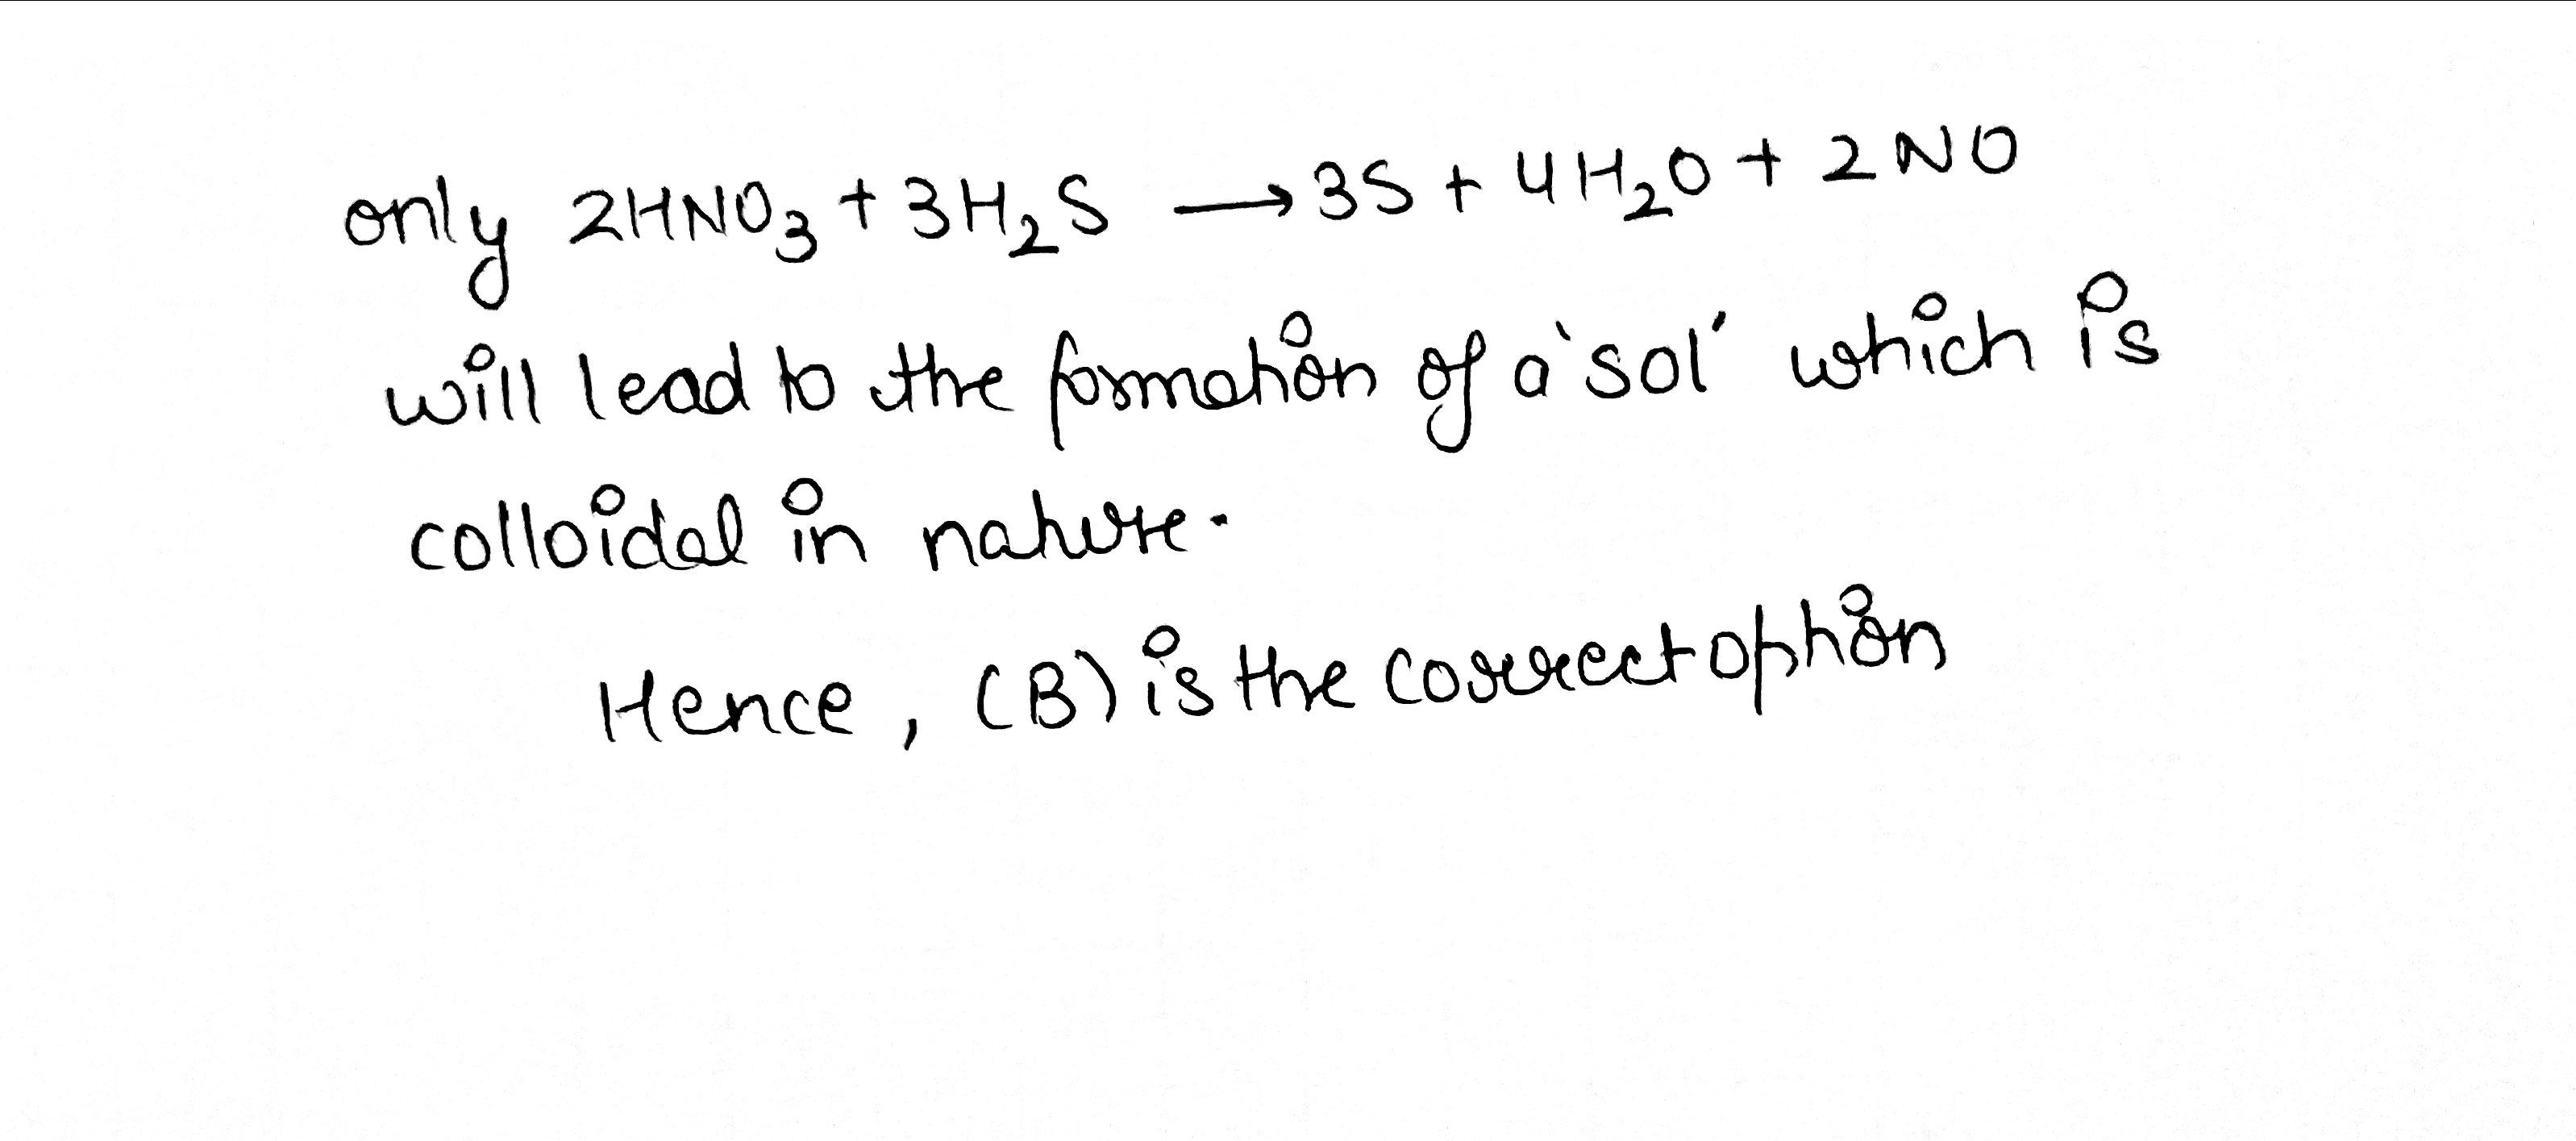 only 2HNO₃ + 3H₂S → 3S + 4H₂O + 2NO
will lead to the formation of a 'sol' which is
colloidal in nature.
Hence, (B) is the correct option